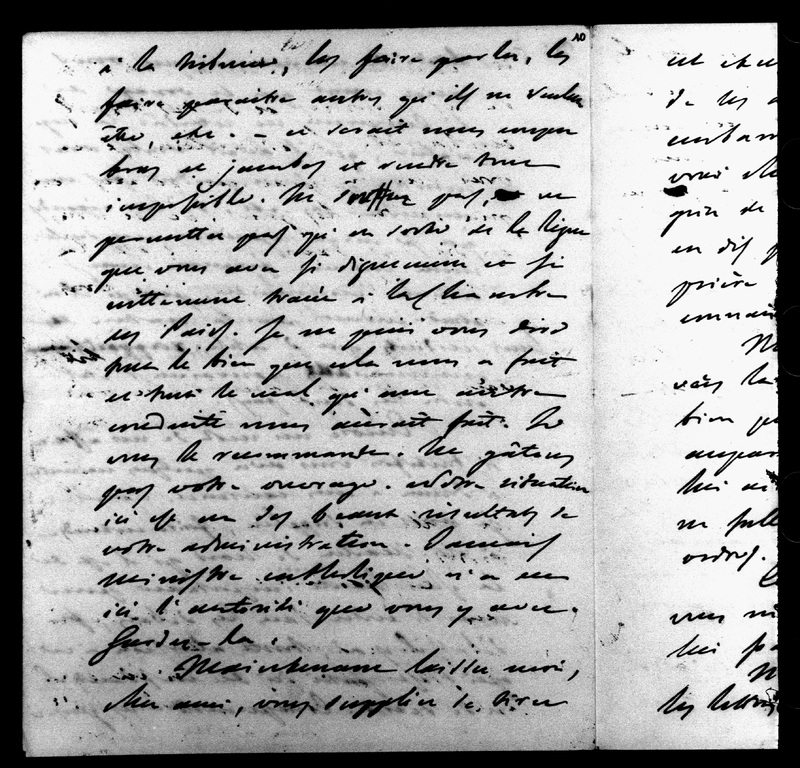 10
à la tribune, les faire parler, les
faire paraître autres qu'ils ne veulent
être, etc. – ce serait nous couper
bras et jambes et rendre tout
impossible. Ne souffrez pas, ne
permettez pas qu'on sorte de la ligne
que vous avez si dignement et si
nettement tracée à la Chambre
des Pairs. Je ne puis vous dire
tout le bien que cela nous a fait
et tout le mal qu'une autre
conduite nous aurait fait. Je
vous le recommande. Ne gâtons
pas votre ouvrage. Notre situation
ici est un des beaux résultats de
votre administration. Jamais
ministre catholique n'a eu
ici l'autorité que vous y avez.
Gardez-la.
Maintenant laissez moi,
cher ami, vous supplier de bien
de les
vrai
prière
bien
lui
ordres.
vous
lui
les lettres